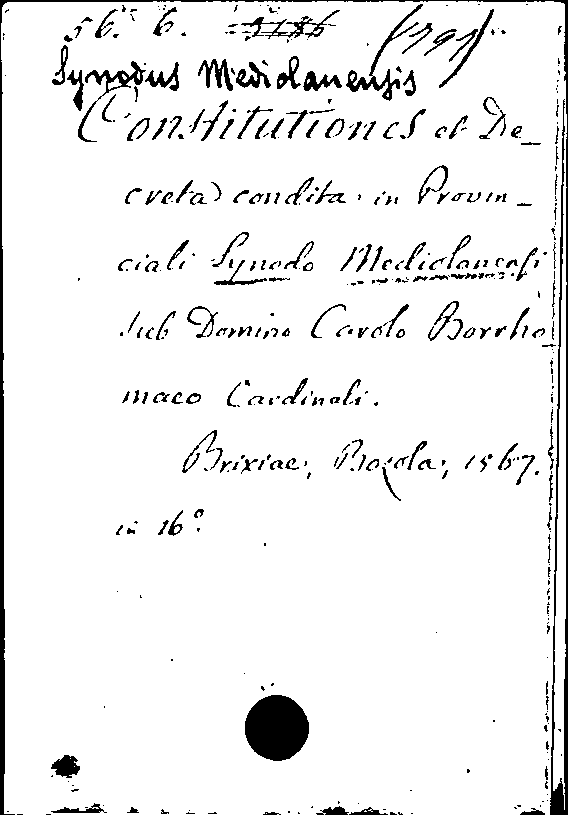 56. 6. 3186 (791)
Synodus Mediolanensis
Constitutiones et De_
creta condita in Provin_
ciali Synodo Mediolanensi
sub Domino Carolo Borrho_
maeo Cardinali.
Brixiae, Bozola, 1567.
in 16º